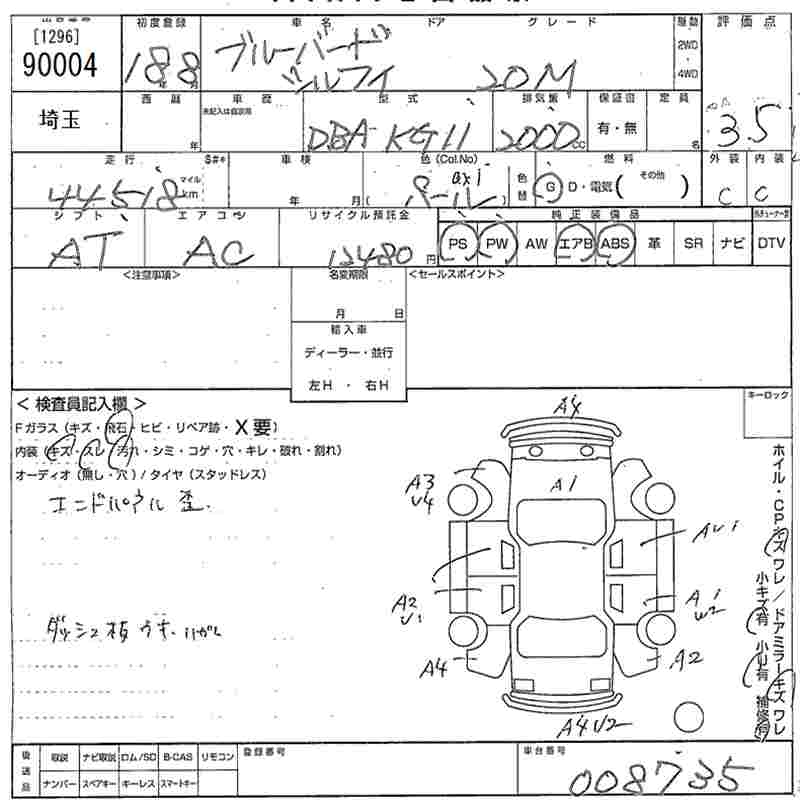 [1296]
90004
埼玉
初度登録
18年8月
車名 ドア グレード
ブルーバード
シルフィ 20M
駆動
2WD
4WD
評価点
3.5
西暦
年
車歴
未記入は自家用
型式
DBA-KG11
排気量
2000cc
保証書
有・無
定員
名
外装 内装
C C
走行 S#*
44518 マイル km
車検
年 月
色(Col.No)
パール
(ax1)
色替
燃料
G D・電気 ( その他 )
シフト
AT
エアコン
AC
リサイクル預託金
12480円
純正装備品
PS PW AW エアB ABS 革 SR ナビ DTV
<注意事項>
名変期限
月 日
輸入車
ディーラー・並行
左H ・ 右H
<セールスポイント>
キーロック
<検査員記入欄>
Fガラス(キズ・飛石・ヒビ・リペア跡・X要)
内装(キズ・スレ・汚れ・シミ・コゲ・穴・キレ・破れ・割れ)
オーディオ(無し・穴)/タイヤ(スタッドレス)
エンドパネル 歪.
ダッシュ板 ウキ.ハガレ
A4
A1
A3
U4
AU1
A2
U1
A1
W2
A4
A2
A4U2
ホイル・CPキズ ワレ/ドアミラーキズ ワレ
小キズ有 小U有 補修有
後送品
取説 ナビ取説 ロム/SD B-CAS リモコン
ナンバー スペアキー キーレス スマートキー
登録番号
車台番号
008735